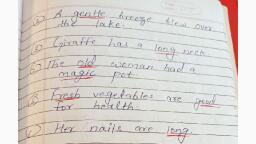 A gentle breeze blew over
the lake.
Giraffe has a long neck
The old woman had a
magic pot.
Fresh vegetables are good
for health.
Her nails are long.